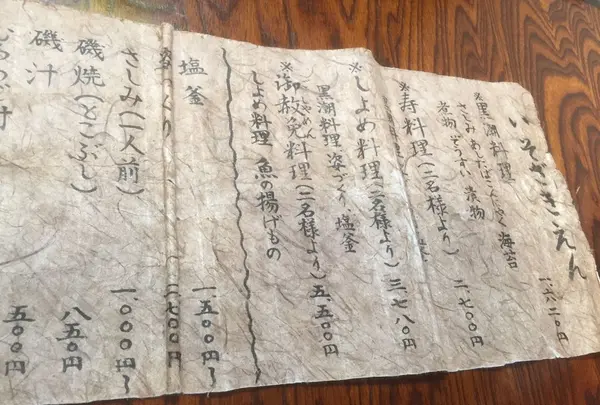 いそざきえん
※黒潮料理 一、六二〇円
さしみ あしたば こんにゃく 海苔
煮物 ぞうすい 漬物
※寿料理(二名様より) 二、七〇〇円
※しよめ料理(二名様より) 三、七八〇円
黒潮料理 姿づくり 塩釜
※御赦免料理(二名様より) 五、五〇〇円
しよめ料理 魚の揚げもの
塩釜 一、五〇〇円〜
づくり 二、七〇〇円〜
さしみ(一人前) 一、〇〇〇円〜
磯焼(とこぶし) 八五〇円
磯汁 五〇〇円